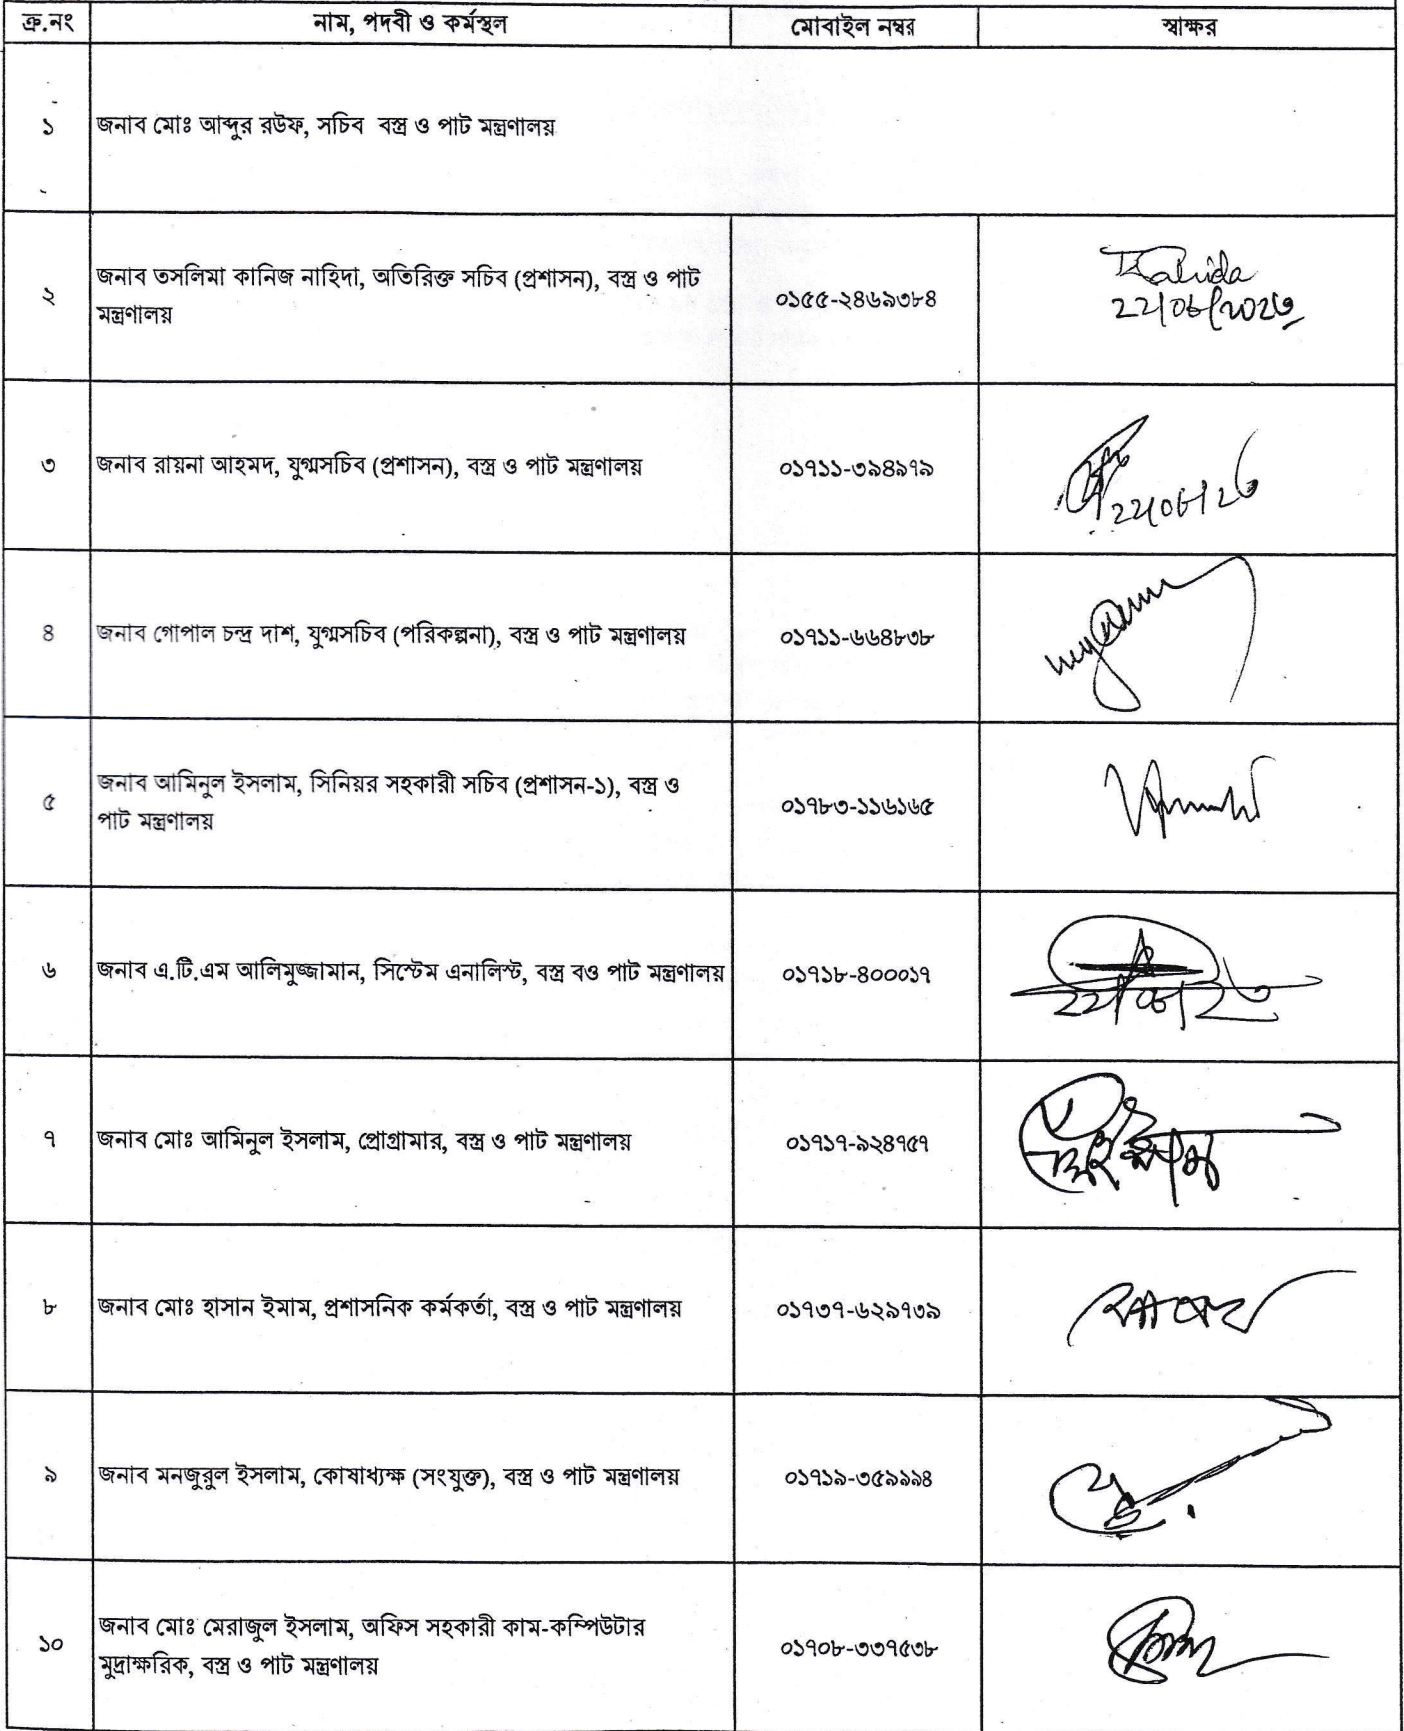 ক্র.নং নাম, পদবী ও কর্মস্থল মোবাইল নম্বর স্বাক্ষর
১ জনাব মোঃ আব্দুর রউফ, সচিব বস্ত্র ও পাট মন্ত্রণালয়
জনাব তসলিমা কানিজ নাহিদা, অতিরিক্ত সচিব (প্রশাসন), বস্ত্র ও পাট
২ মন্ত্রণালয় ০১৫৫-২৪৬৯৩৮৪ Nahida
22/06/2023
৩ জনাব রায়না আহমদ, যুগ্মসচিব (প্রশাসন), বস্ত্র ও পাট মন্ত্রণালয় ০১৭১১-৩৯৪৯৭৯
২২/০৬/২৩
৪ জনাব গোপাল চন্দ্র দাশ, যুগ্মসচিব (পরিকল্পনা), বস্ত্র ও পাট মন্ত্রণালয় ০১৭১১-৬৬৪৮৩৮
জনাব আমিনুল ইসলাম, সিনিয়র সহকারী সচিব (প্রশাসন-১), বস্ত্র ও
৫ পাট মন্ত্রণালয় ০১৭৮৩-১১৬১৬৫
৬ জনাব এ.টি.এম আলিমুজ্জামান, সিস্টেম এনালিস্ট, বস্ত্র বও পাট মন্ত্রণালয় ০১৭১৮-৪০০০১৭
২২/০৬/২৩
৭ জনাব মোঃ আমিনুল ইসলাম, প্রোগ্রামার, বস্ত্র ও পাট মন্ত্রণালয় ০১৭১৭-৯২৪৭৫৭
৮ জনাব মোঃ হাসান ইমাম, প্রশাসনিক কর্মকর্তা, বস্ত্র ও পাট মন্ত্রণালয় ০১৭৩৭-৬২৯৭৩৯
৯ জনাব মনজুরুল ইসলাম, কোষাধ্যক্ষ (সংযুক্ত), বস্ত্র ও পাট মন্ত্রণালয় ০১৭১৯-৩৫৯৯৯৪
জনাব মোঃ মেরাজুল ইসলাম, অফিস সহকারী কাম-কম্পিউটার
১০ মুদ্রাক্ষরিক, বস্ত্র ও পাট মন্ত্রণালয় ০১৭০৮-৩৩৭৫৩৮